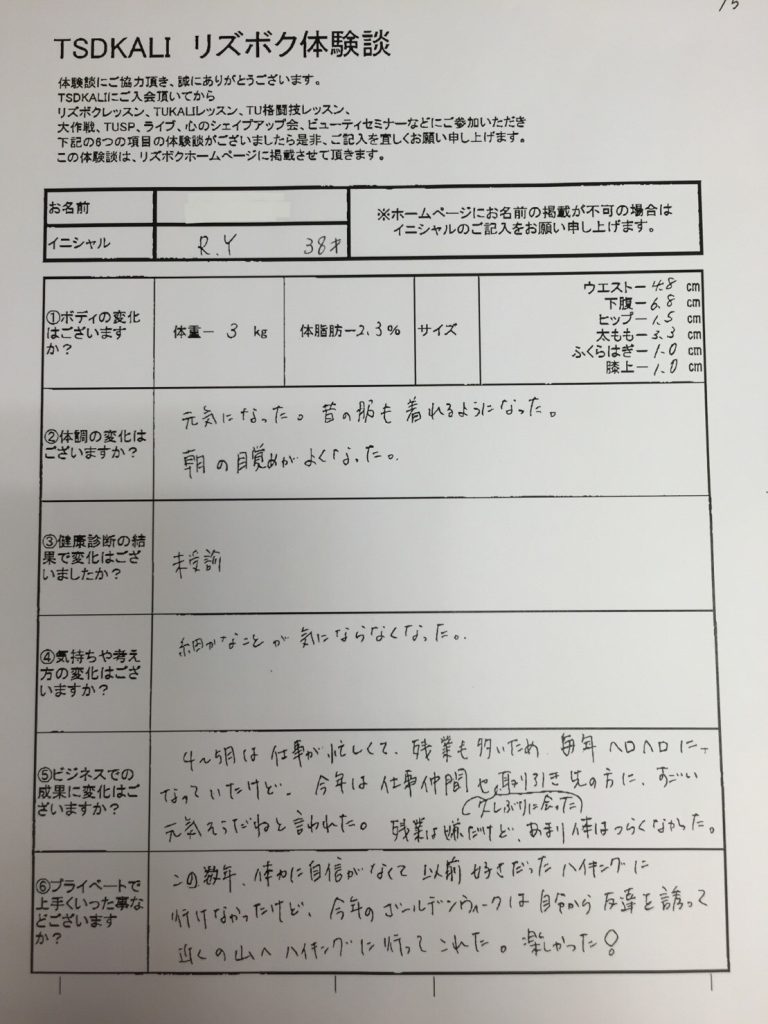 15
TSDKALI リズボク体験談
体験談にご協力頂き、誠にありがとうございます。
TSDKALIにご入会頂いてから
リズボクレッスン、TUKALIレッスン、TU格闘技レッスン、
大作戦、TUSP、ライブ、心のシェイプアップ会、ビューティセミナーなどにご参加いただき
下記の6つの項目の体験談がございましたら是非、ご記入を宜しくお願い申し上げます。
この体験談は、リズボクホームページに掲載させて頂きます。
お名前
イニシャル R.Y 38才
※ホームページにお名前の掲載が不可の場合は
イニシャルのご記入をお願い申し上げます。
①ボディの変化
はございます
か？
体重－ 3 kg
体脂肪－2.3%
サイズ
ウエスト－4.8 cm
下腹－6.8 cm
ヒップ－1.5 cm
太もも－3.3 cm
ふくらはぎ－1.0 cm
膝上－1.0 cm
②体調の変化は
ございますか？
元気になった。昔の服も着れるようになった。
朝の目覚めがよくなった。
③健康診断の結
果で変化はござ
いましたか？
未受診
④気持ちや考え
方の変化はござ
いますか？
細かなことが気にならなくなった。
⑤ビジネスでの
成果に変化はご
ざいますか？
4～5月は仕事が忙しくて、残業も多いため毎年ヘロヘロに
なっていたけど、今年は仕事仲間や取り引き先の方に、すごい
(久しぶりに会った)
元気そうだねと言われた。残業は嫌だけど、あまり体はつらくなかった。
⑥プライベートで
上手くいった事な
どございます
か？
この数年、体力に自信がなくて以前好きだったハイキングに
行けなかったけど、今年のゴールデンウィークは自分から友達を誘って
近くの山へハイキングに行ってこれた。楽しかった！